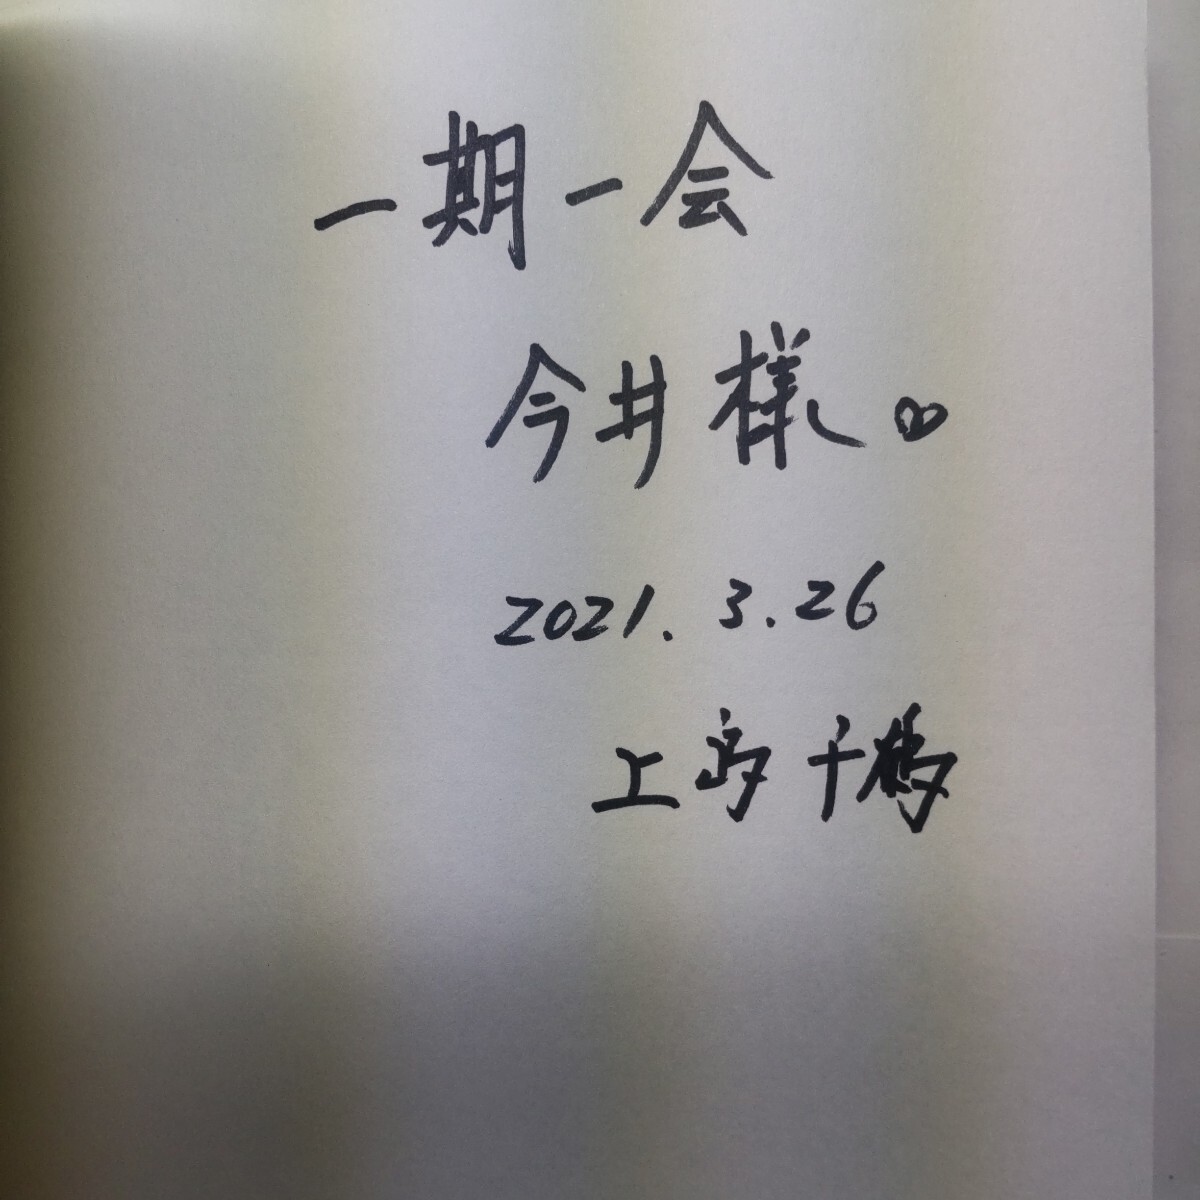 一期一会
今井様。
2021.3.26
上島千鶴